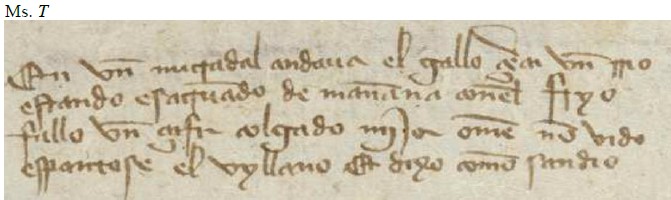 Ms. T
En vn muladal andaua el gallo çerca vn rrio
estando escaruando de mañana conel fryo
fallo vn çafir colgado mejor ome nõ vido
espantose el vyllano Et dixo comõ sandio